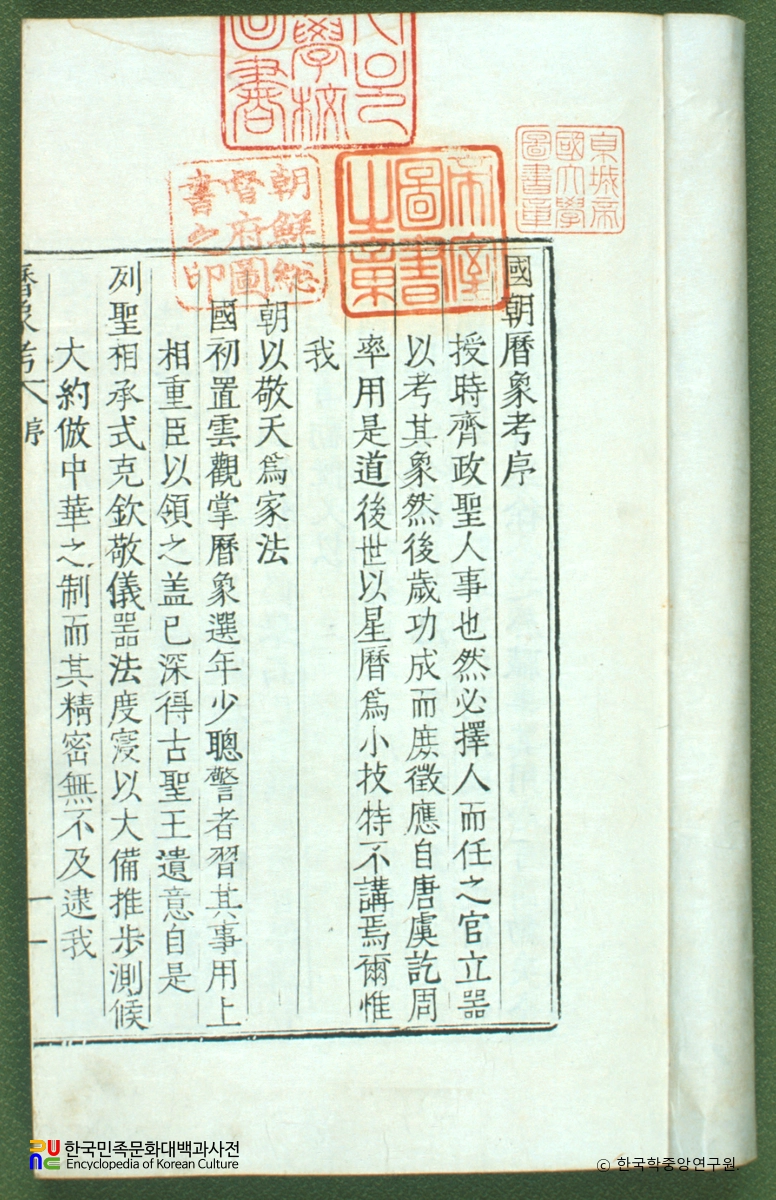 國朝曆象考序
授時齊政聖人事也然必擇人而任之官立器
以考其象然後歲功成而庶徵應自唐虞訖周
率用是道後世以星曆爲小技特不講焉爾惟
我
朝以敬天爲家法
國初置雲觀掌曆象選年少聰警者習其事用上
相重臣以領之盖已深得古聖王遺意自是
列聖相承式克欽敬儀器法度寖以大備推步測候
大約倣中華之制而其精密無不及逮我
曆象考 序 一
帝室
圖書
之章
朝鮮總
督府圖
書之印
京城帝
國大學
圖書章
學校
圖書
한국민족문화대백과사전
Encyclopedia of Korean Culture
© 한국학중앙연구원